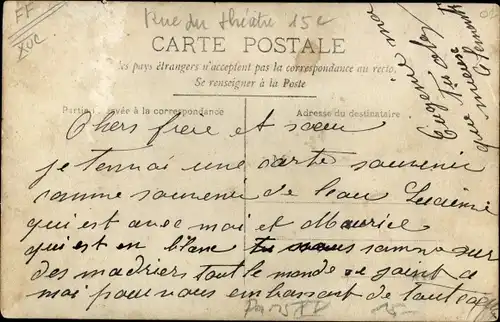 FF
XUC
Rue du théâtre 15e
CARTE POSTALE
les pays étrangers n'acceptent pas la correspondance au recto.
Se renseigner à la Poste
Partie réservée à la correspondance
Adresse du destinataire
Chers frere et sœur
je tenvoi une carte souvenir
comme souvenir de beau Lucien
qui est avec moi et Maurice
qui est en blanc sur
des madriers tout le monde se joint a
moi pour vous embrassant de tout
Eugenie
que
Paris
15-